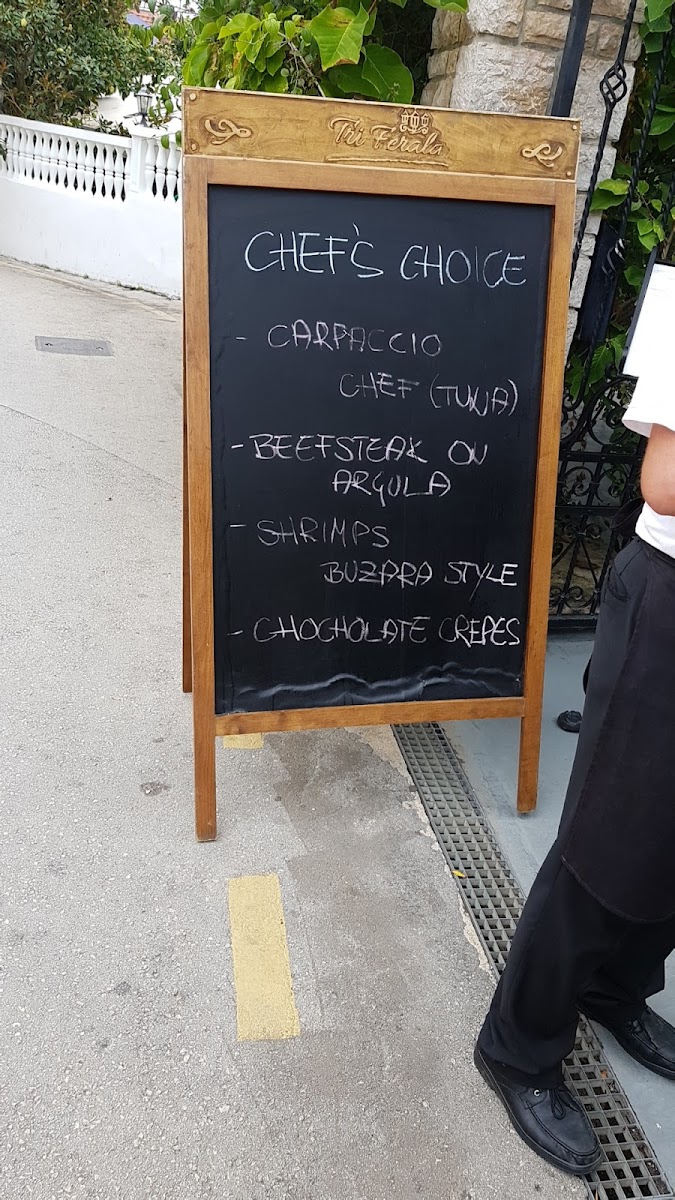 Tri Ferala
CHEF'S CHOICE
- CARPACCIO
CHEF (TUNA)
- BEEFSTEAK ON
ARGULA
- SHRIMPS
BUZARA STYLE
- CHOCHOLATE CREPES